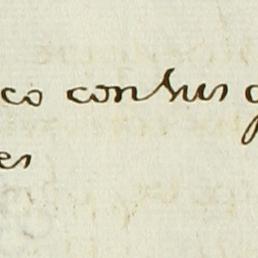 co con sus g
es